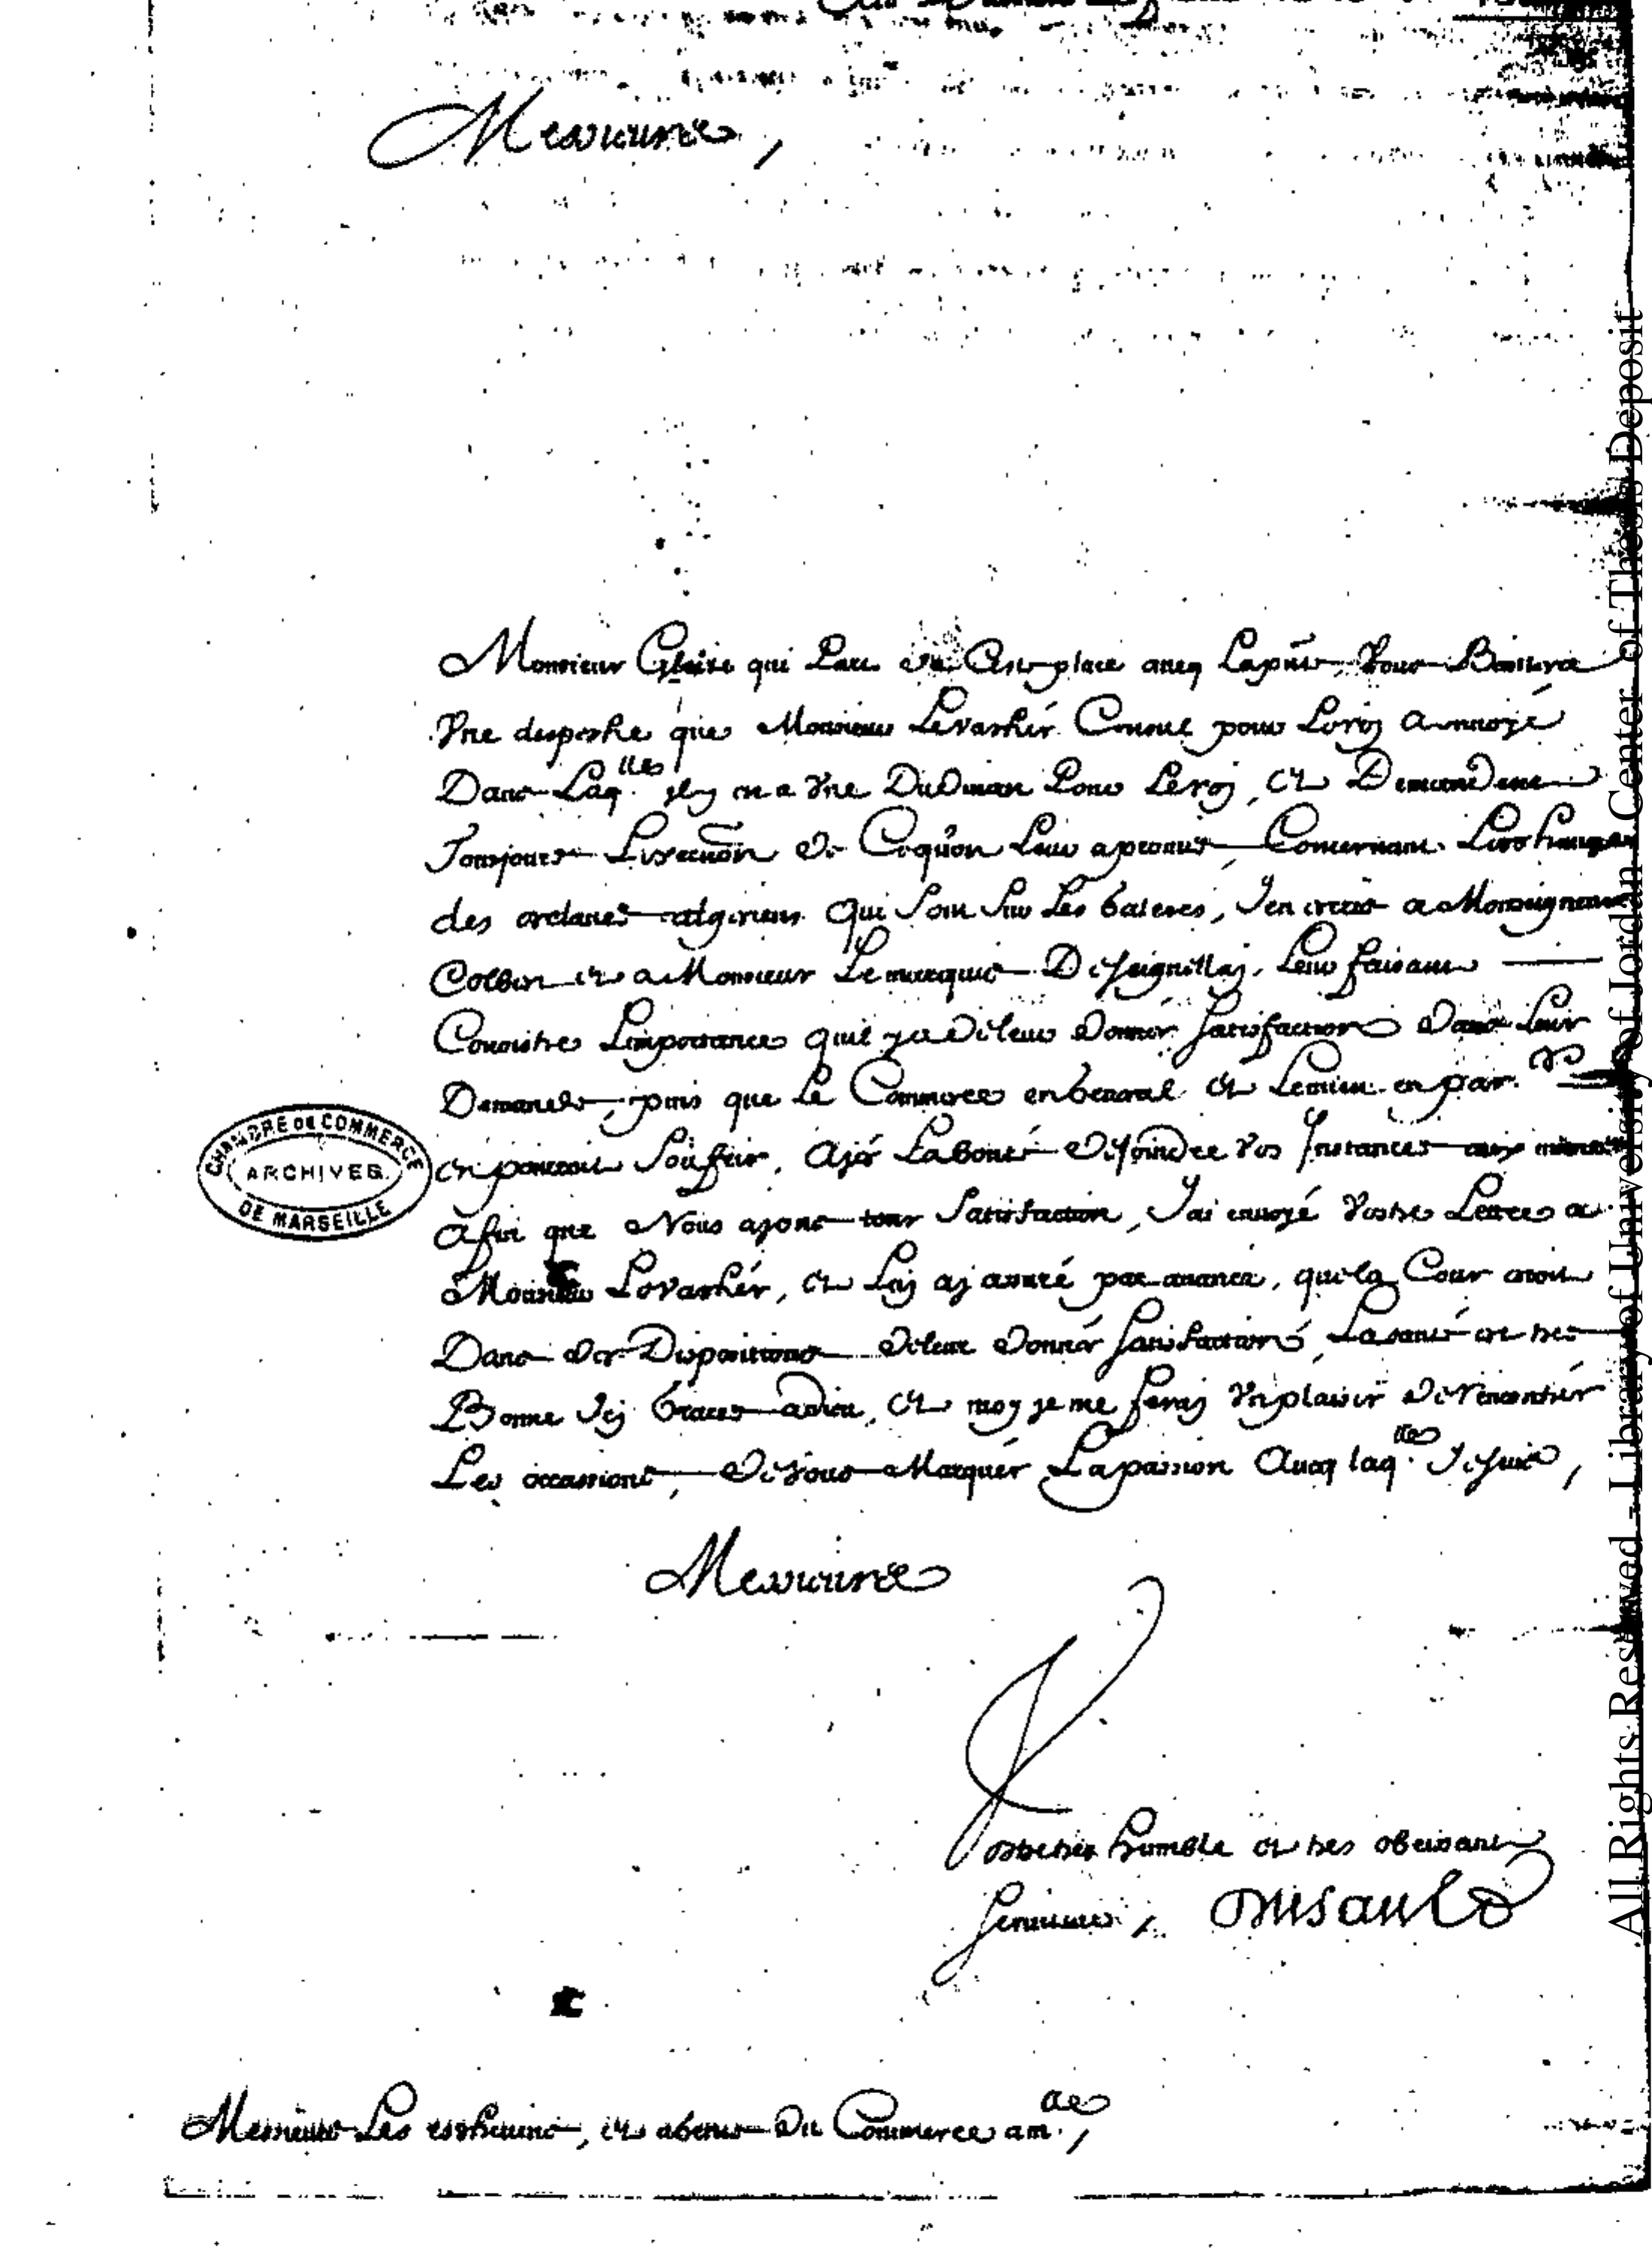 Messieurs,
Monsieur qui Part de Ceste place aueq Lapnte Vous Baillera
Vne despeshe que Monsieur Levashér Consul pour Leroy a enuoyé
Dans Laqlles Jl y en a Vne Du Divan Pour Le roy, Et Demandent
Tousjours Lexecuõn De Cequ'on Leur a promis, Concernant Leschange
des esclaues algeriens Qui Sont Sur Les Galeres, J'en escris a Monseigneur
Colbert et a Monsieur Le marquis De Seignellay, Leur faisant
Conoistre Limportance quil y a De leur Donnér Satisfaction Dans Leur
Demande, puis que Le Commerce en General Et Lemien en par
en pouroit Soufrir, Ayés La Bonté De Joindre Vos Instances aux miennes
Afin que Nous ayons tous Satisfaction, J'ai enuoyé Vostre Lettre a
Monsieur Levashér, Et Luy ay assuré par auance, que la Cour estoit
Dans des Dispositions De leur Donnér Satisfaction, La santé est tres
Bonne Jcy Graces a dieu, Et moy je me feray Vn plaisir De rencontrér
Les occasions, De Vous Marquér La passion Aueq laqlle Je suis,
Messieurs
Vostre tres humble et tres obeissant
Seruiteur, Dusault
CHAMBRE DE COMMERCE
ARCHIVES
DE MARSEILLE
Messieurs Les escheuins, et du Commerce a mlle,
All Rights Reserved - Library of University of Jordan - Center of Thesis Deposit